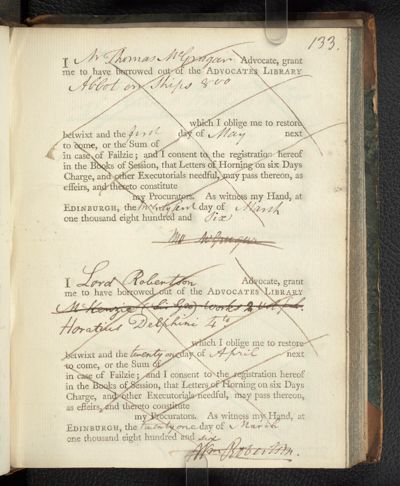 133.
I Mr Thomas McGrugar Advocate, grant
me to have borrowed out of the ADVOCATES LIBRARY
Abbot on Ships 8vo
which I oblige me to restore
betwixt and the first day of May next
to come, or the Sum of
in case of Failzie; and I consent to the registration hereof
in the Books of Session, that Letters of Horning on six Days
Charge, and other Executorials needful, may pass thereon, as
effeirs, and thereto constitute
my Procurators. As witness my Hand, at
EDINBURGH, the day of March
one thousand eight hundred and Six
McGrugar
I Lord Robertson Advocate, grant
me to have borrowed out of the ADVOCATES LIBRARY
McKenzie (Sir Geo) Works 2 vol. f.
Horatius Delphini 4to
which I oblige me to restore
betwixt and the twenty one day of April next
to come, or the Sum of
in case of Failzie; and I consent to the registration hereof
in the Books of Session, that Letters of Horning on six Days
Charge, and other Executorials needful, may pass thereon,
as effeirs, and thereto constitute
my Procurators. As witness my Hand, at
EDINBURGH, the twenty one day of March
one thousand eight hundred and six
Robertson.